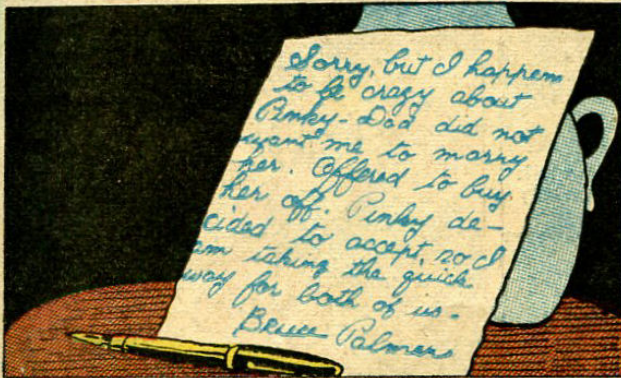 Sorry, but I happen
to be crazy about
Pinky - Dad did not
want me to marry
her. Offered to buy
her off. Pinky de-
cided to accept, so I
am taking the quick
way for both of us -
Bruce Palmers